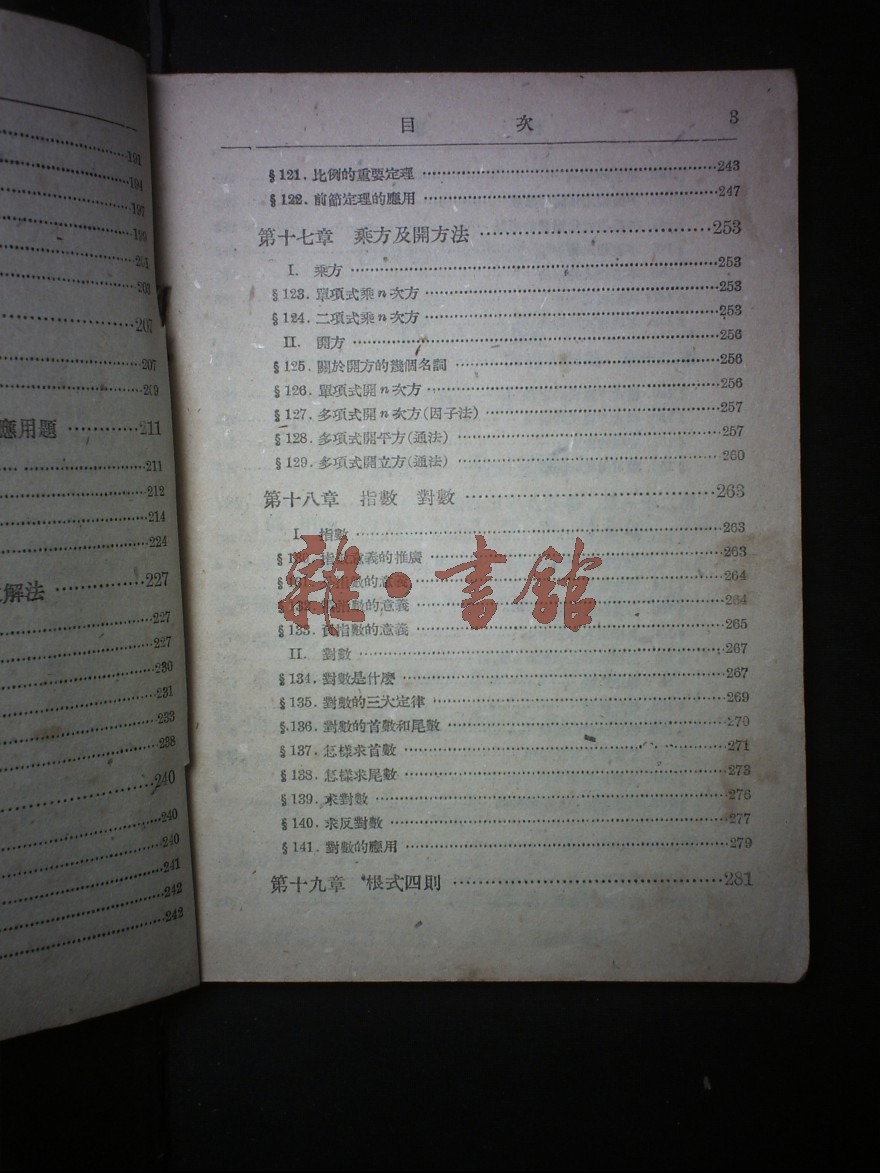 191
194
197
199
201
203
207
207
209
應用題 ………… 211
211
212
214
224
解法 ………… 227
227
227
230
231
233
238
240
240
240
241
242
242
目 次 3
§121. 比例的重要定理 ………… 243
§122. 前節定理的應用 ………… 247
第十七章 乘方及開方法 ………… 253
I. 乘方 ………… 253
§123. 單項式乘n次方 ………… 253
§124. 二項式乘n次方 ………… 253
II. 開方 ………… 256
§125. 關於開方的幾個名詞 ………… 256
§126. 單項式開n次方 ………… 256
§127. 多項式開n次方(因子法) ………… 257
§128. 多項式開平方(通法) ………… 257
§129. 多項式開立方(通法) ………… 260
第十八章 指數 對數 ………… 263
I. 指數 ………… 263
§130. 指數意義的推廣 ………… 263
§131. 指數的意義 ………… 264
§132. 指數的意義 ………… 264
§133. 負指數的意義 ………… 265
II. 對數 ………… 267
§134. 對數是什麼 ………… 267
§135. 對數的三大定律 ………… 269
§136. 對數的首數和尾數 ………… 270
§137. 怎樣求首數 ………… 271
§138. 怎樣求尾數 ………… 273
§139. 求對數 ………… 276
§140. 求反對數 ………… 277
§141. 對數的應用 ………… 279
第十九章 根式四則 ………… 281
雜·書館